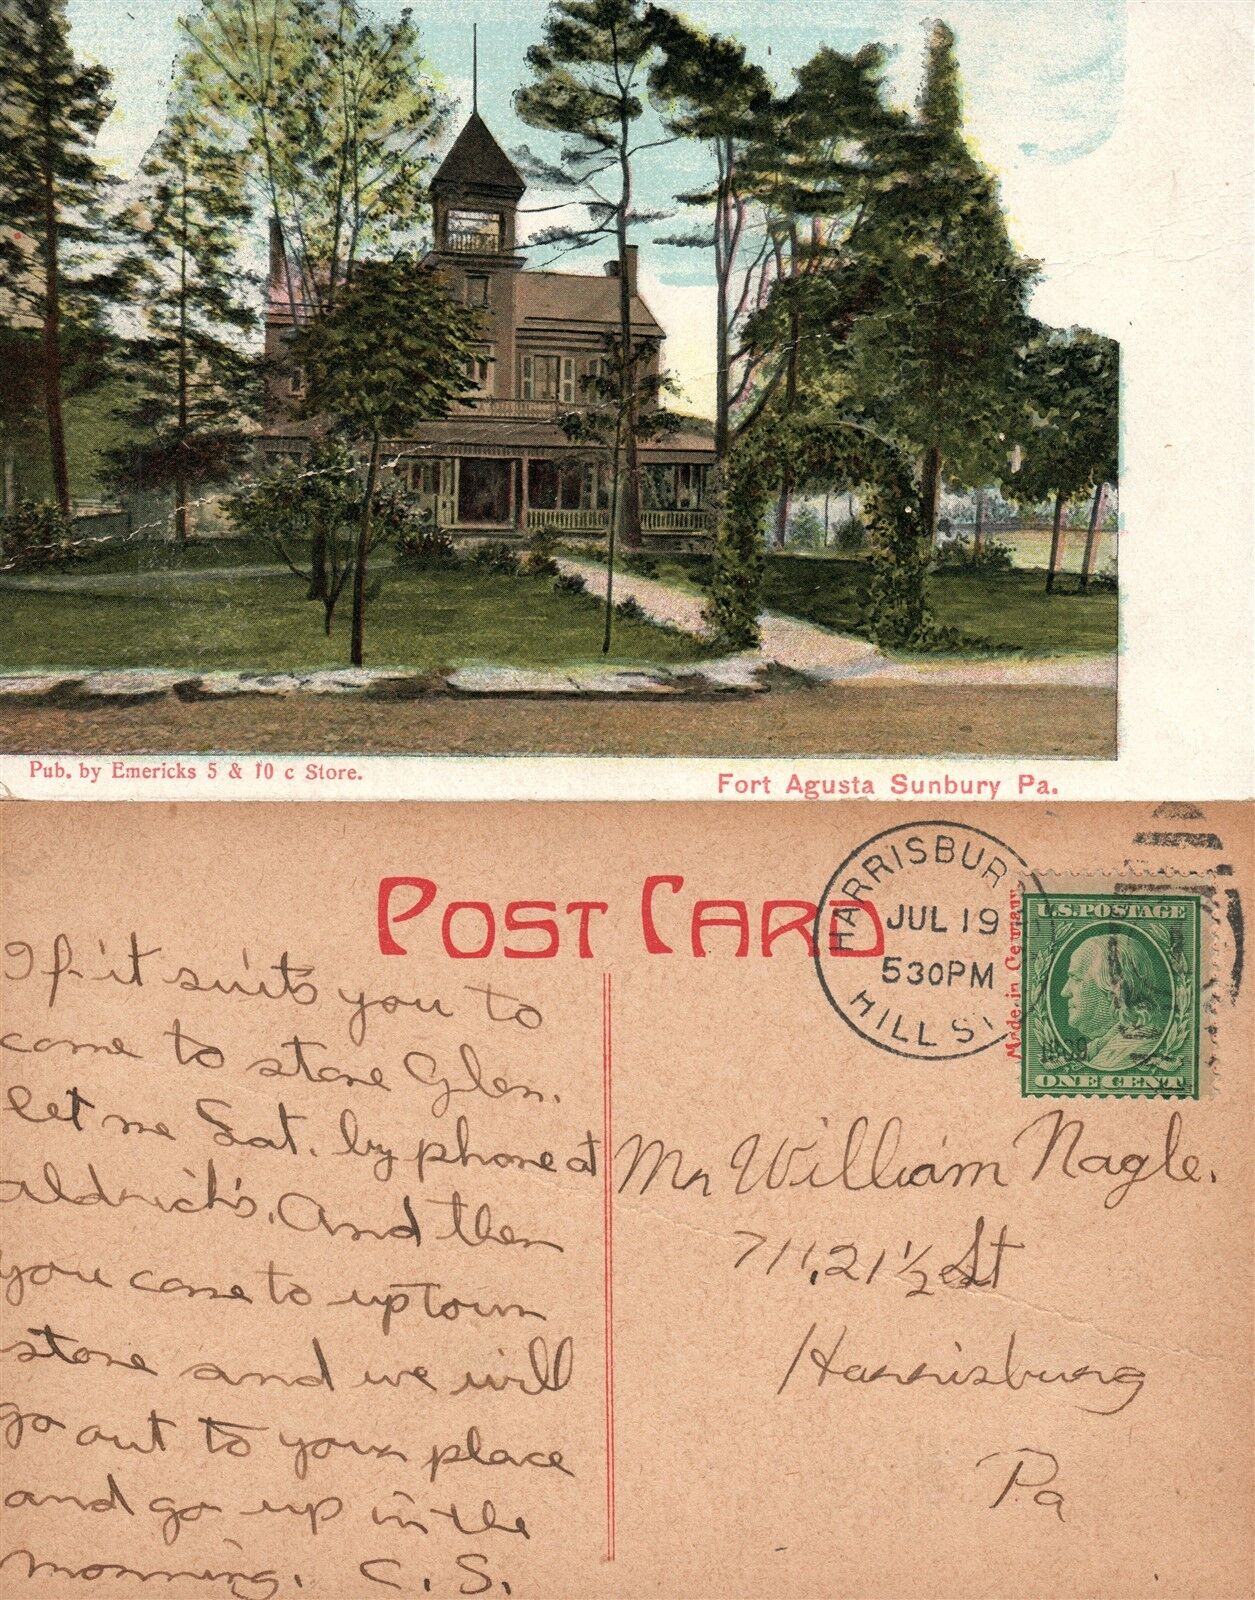 Pub. by Emericks 5 & 10 c Store.
Fort Agusta Sunbury Pa.
POST CARD
HARRISBUR
JUL 19
530PM
HILL S
Made in Germany
U.S. POSTAGE
ONE CENT
If it suits you to
come to store Glen.
let me Sat. by phone at
aldrich's. And then
you come to uptown
store and we will
go out to your place
and go up in the
morning. C. S.
Mr William Nagle.
711, 21 1/2 St
Harrisburg
Pa